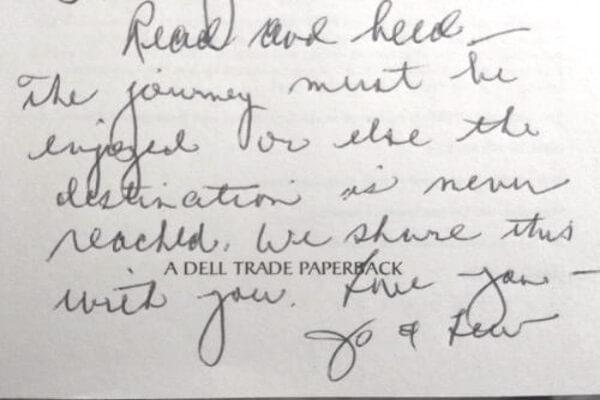 Read and heed —
The journey must be
enjoyed or else the
destination is never
reached. We share this
A DELL TRADE PAPERBACK
with you. Love you —
Jo &